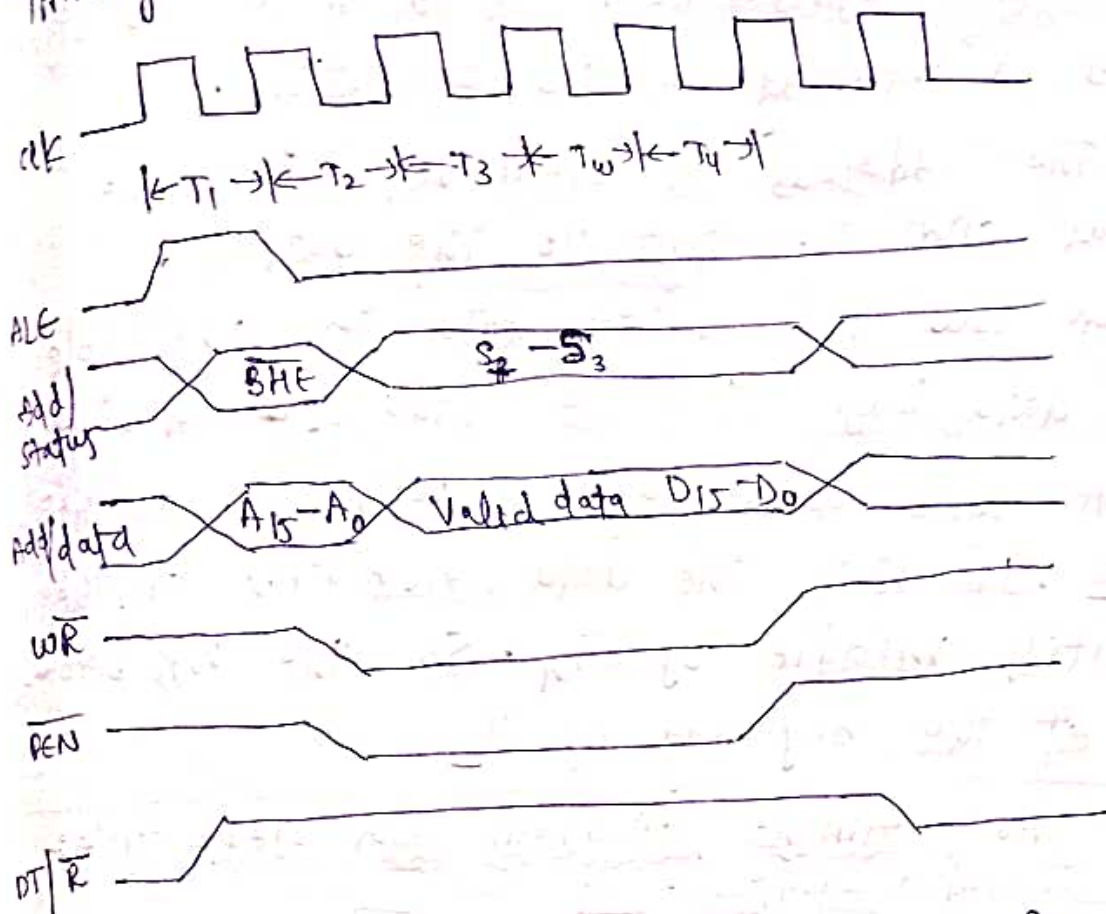 clk
|← T₁ →|← T₂ →|← T₃ →|← Tw →|← T₄ →|
ALE
Add/
status
B̅H̅E̅
S₇ - S̅₃
Add/data
A₁₅-A₀
Valid data D₁₅-D₀
WR̅
D̅E̅N̅
DT/R̅